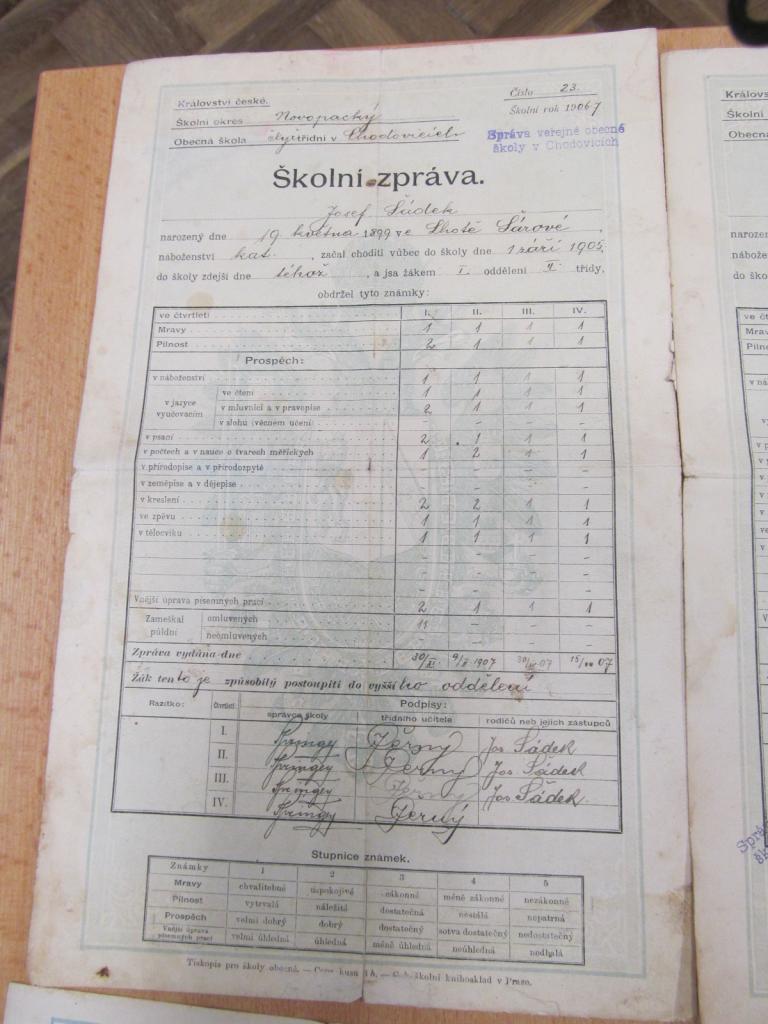 Království české.
Číslo 23.
Školní okres Novopacký
Školní rok 1906-7
Obecná škola čtyřtřídní v Chodovicích
Správa veřejné obecné
školy v Chodovicích
Školní zpráva.
Josef Sádek
narozený dne 19 května 1899 ve Lhotě Šárové,
náboženství kat., začal choditi vůbec do školy dne 1 září 1905,
do školy zdejší dne téhož, a jsa žákem I. oddělení II. třídy,
obdržel tyto známky:
ve čtvrtletí I. II. III. IV.
Mravy 1 1 1 1
Pilnost 2 1 1 1
Prospěch:
v náboženství 1 1 1 1
v jazyce vyučovacím
ve čtení 1 1 1 1
v mluvnici a v pravopise 2 1 1 1
v slohu (věcném učení) - - - -
v psaní 2 1 1 1
v počtech a v nauce o tvarech měřických 1 2 1 1
v přírodopise a v přírodozpytě - - - -
v zeměpise a v dějepise - - - -
v kreslení 2 2 1 1
ve zpěvu 1 1 1 1
v tělocviku 1 1 1 1
- - - -
- - - -
- - - -
Vnější úprava písemných prací 2 1 1 1
Zameškal půldní
omluvených 11 - - -
neomluvených - - - -
Zpráva vydána dne 30/XI. 9/II 1907 15/VII 07
Žák tento je způsobilý postoupiti do vyššího oddělení
Razítko: Čtvrtletí Podpisy:
správce školy třídního učitele rodičů neb jejich zástupců
I. Černý Jos Sádek
II. Černý Jos. Sádek
III. Černý Jos Sádek.
IV. Černý
Stupnice známek.
Známky 1 2 3 4 5
Mravy chvalitebné uspokojivé zákonné méně zákonné nezákonné
Pilnost vytrvalá náležitá dostatečná nestálá nepatrná
Prospěch velmi dobrý dobrý dostatečný sotva dostatečný nedostatečný
Vnější úprava písemných prací velmi úhledná úhledná méně úhledná neúhledná nedbalá
Tiskopis pro školy obecné. — Cena kusu 4 h. — C. k. školní knihosklad v Praze.
Královs
Školní
Obecná
narozen
nábože
do ško
ve čt
Mrav
Piln